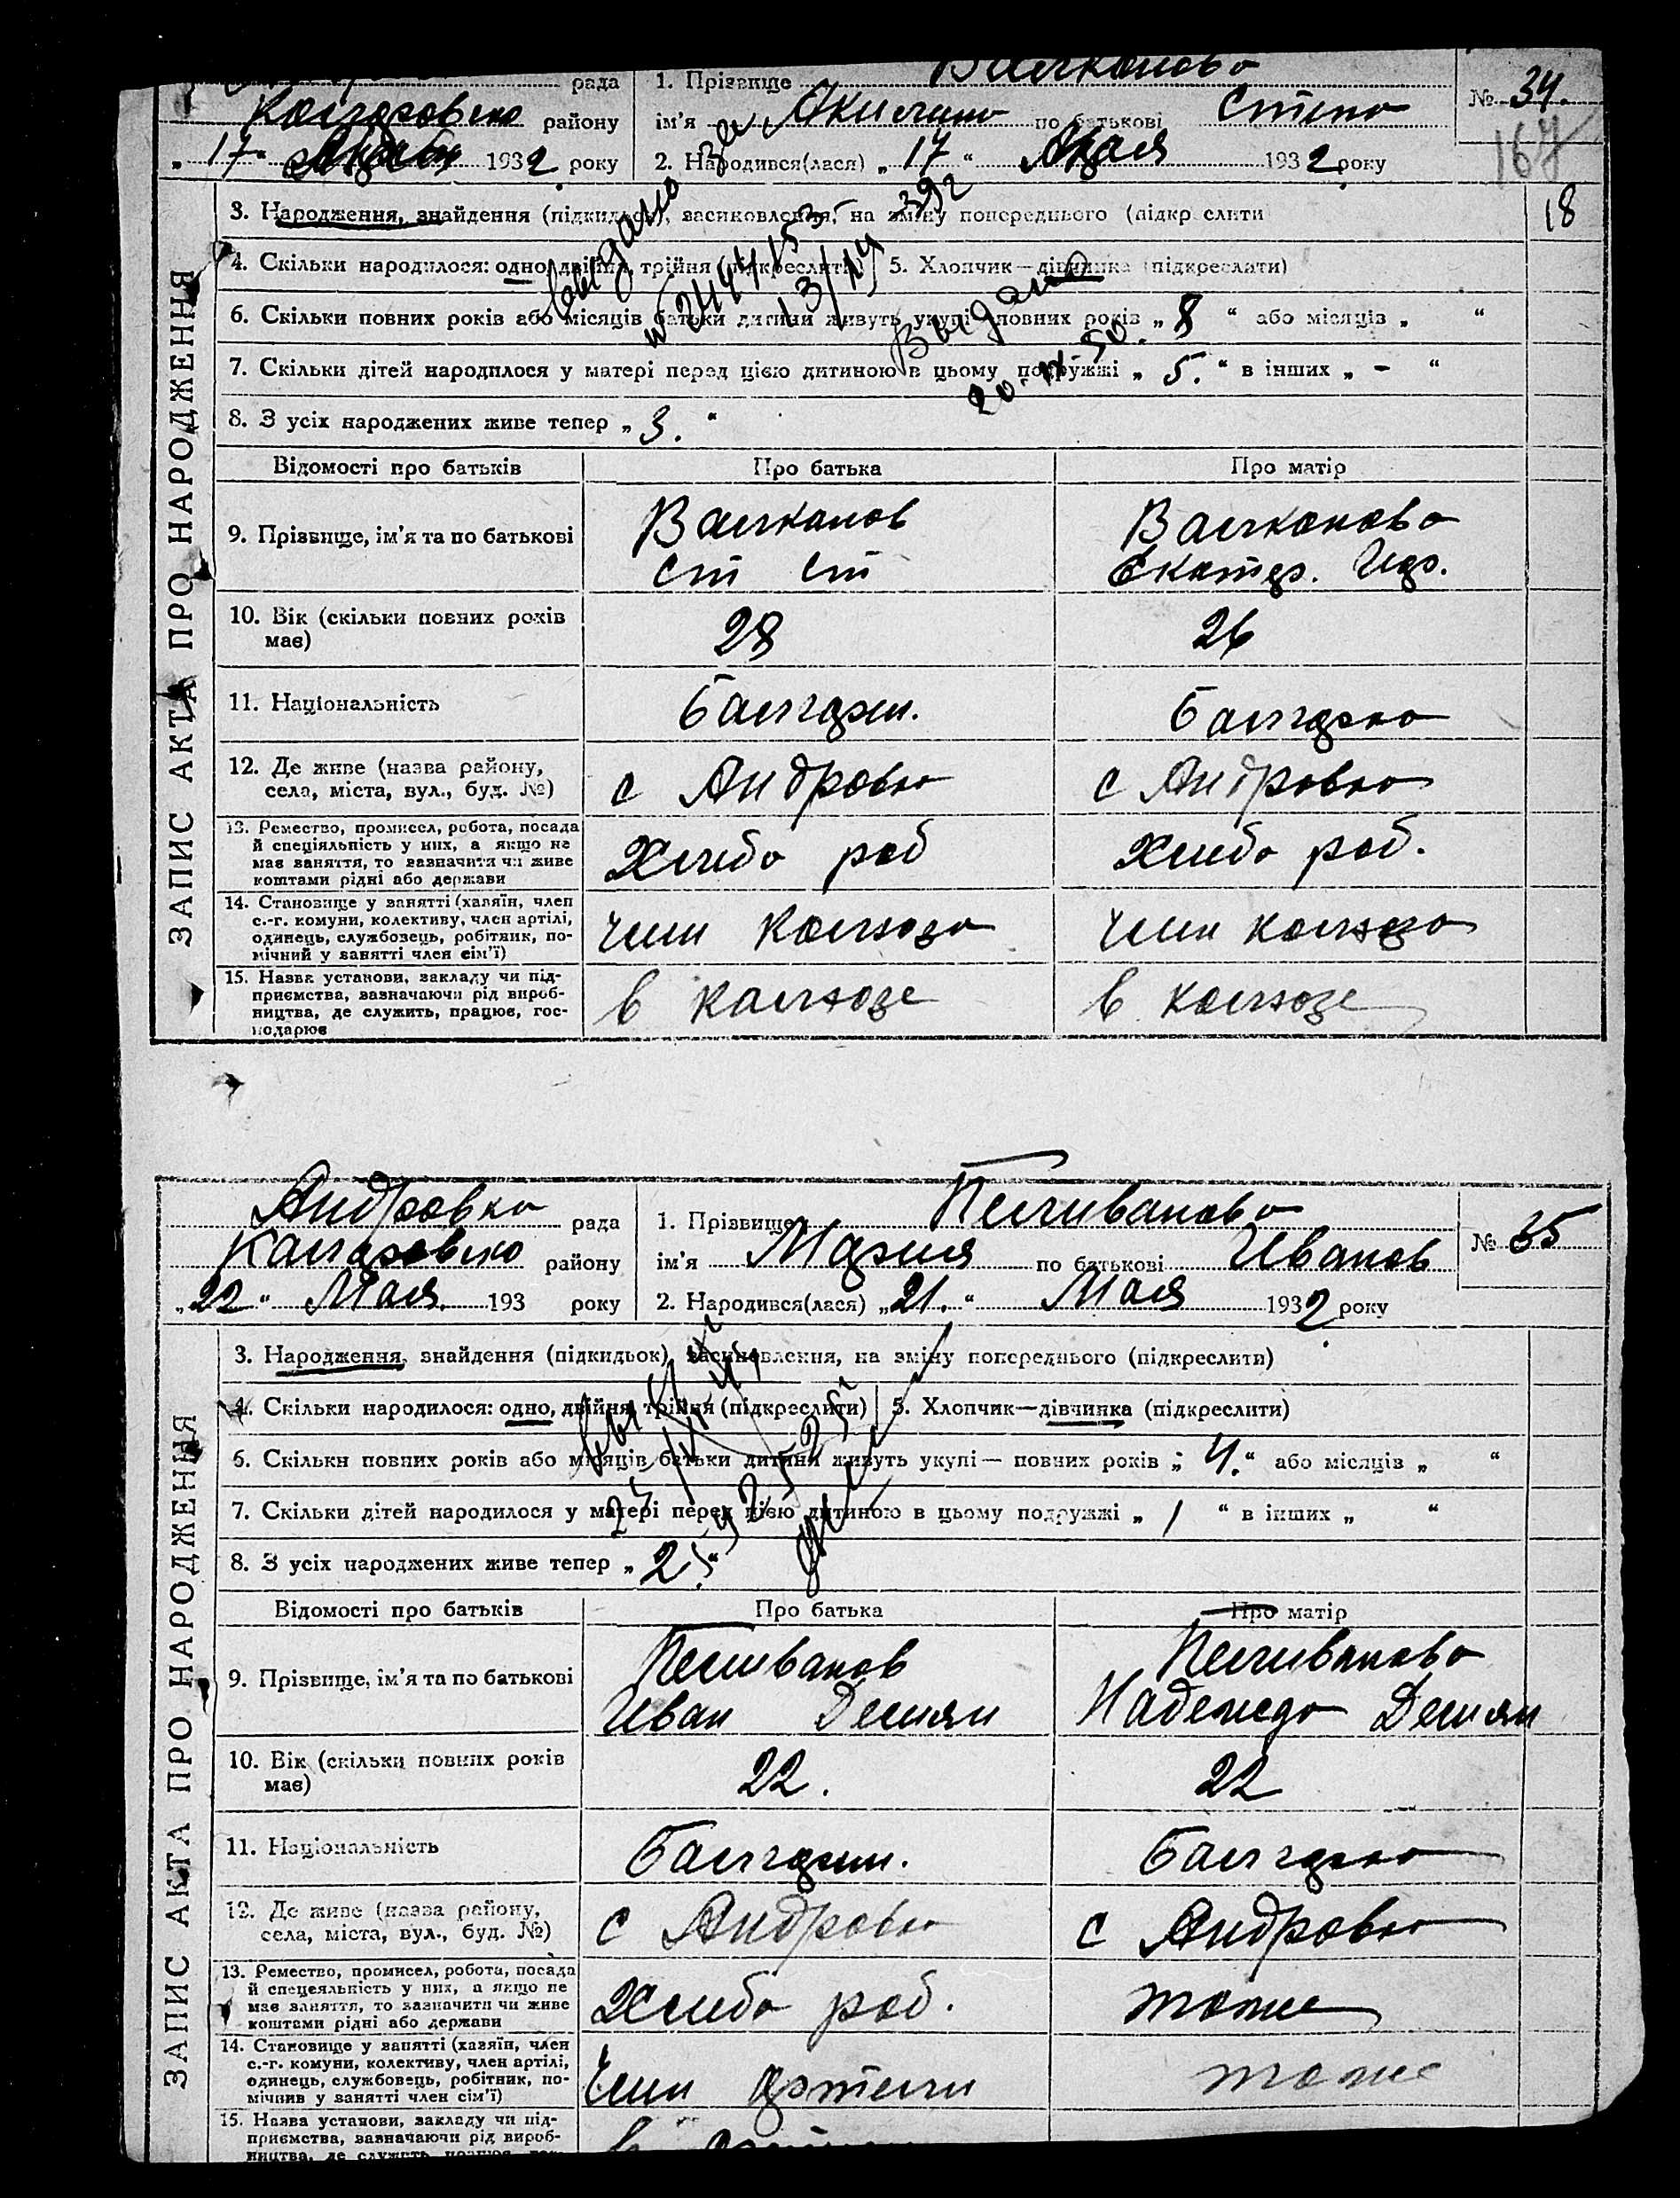 рада
Колларовско району
„ 17 “ 1932 року
1. Прізвище Валканова
ім'я Акилина по батькові Степа
2. Народився(лася) „ 17 “ 1932 року
№ 34.
167
3. Народження, знайдення (підкидьок), засиновлення, на зміну попереднього (підкреслити
18
4. Скільки народилося: одно, двійня, трійня (підкреслити) 5. Хлопчик—дівчинка (підкреслити)
6. Скільки повних років або місяців батьки дитини живуть укупі — повних років „ 8 “ або місяців „ “
7. Скільки дітей народилося у матері перед цією дитиною в цьому подружжі „ 5. “ в інших „ - “
8. З усіх народжених живе тепер „ 3. “
выдано
Выдано
20-IX-50
ЗАПИС АКТА ПРО НАРОДЖЕННЯ
Відомості про батьків Про батька Про матір
9. Прізвище, ім'я та по батькові
Валканов
Ст Ст
Валканова
Екатер. Игр.
10. Вік (скільки повних років
має)
28 26
11. Національність Балгарин. Балгарка
12. Де живе (назва району,
села, міста, вул., буд. №)
с Андровка с Андровка
13. Ремество, промисел, робота, посада
й спеціяльність у них, а якщо не
має заняття, то зазначити чи живе
коштами рідні або держави
Хлибо роб Хлибо роб.
14. Становище у занятті (хазяїн, член
с.-г. комуни, колективу, член артілі,
одинець, службовець, робітник, по-
мічний у занятті член сім'ї)
член колхоза член колхоза
15. Назва установи, закладу чи під-
приємства, зазначаючи рід вироб-
ництва, де служить, працює, гос-
подарює
в калхозе в колхозе
Андровка рада
Калларовско району
„ 22 “ Мая 193 року
1. Прізвище Пеливанова
ім'я Мария по батькові Иванов
2. Народився(лася) „ 21. “ Мая 1932 року
№ 35
3. Народження, знайдення (підкидьок), засиновлення, на зміну попереднього (підкреслити)
4. Скільки народилося: одно, двійня, трійня (підкреслити) 5. Хлопчик—дівчинка (підкреслити)
6. Скільки повних років або місяців батьки дитини живуть укупі — повних років „ 4. “ або місяців „ “
7. Скільки дітей народилося у матері перед цією дитиною в цьому подружжі „ 1 “ в інших „ “
8. З усіх народжених живе тепер „ 2. “
ЗАПИС АКТА ПРО НАРОДЖЕННЯ
Відомості про батьків Про батька Про матір
9. Прізвище, ім'я та по батькові
Пеливанов
Иван Демян
Пеливанова
Надежда Демян
10. Вік (скільки повних років
має)
22. 22
11. Національність Балгарин. Балгарка
12. Де живе (назва району,
села, міста, вул., буд. №)
с Андровка с Андровка
13. Ремество, промисел, робота, посада
й спецеяльність у них, а якщо не
має заняття, то зазначити чи живе
коштами рідні або держави
Хлибо роб. тоже
14. Становище у занятті (хазяїн, член
с.-г. комуни, колективу, член артілі,
одинець, службовець, робітник, по-
мічнив у занятті член сім'ї)
член артели тоже
15. Назва установи, закладу чи під-
приємства, зазначаючи рід вироб-
ництва, де служить, працює, гос-